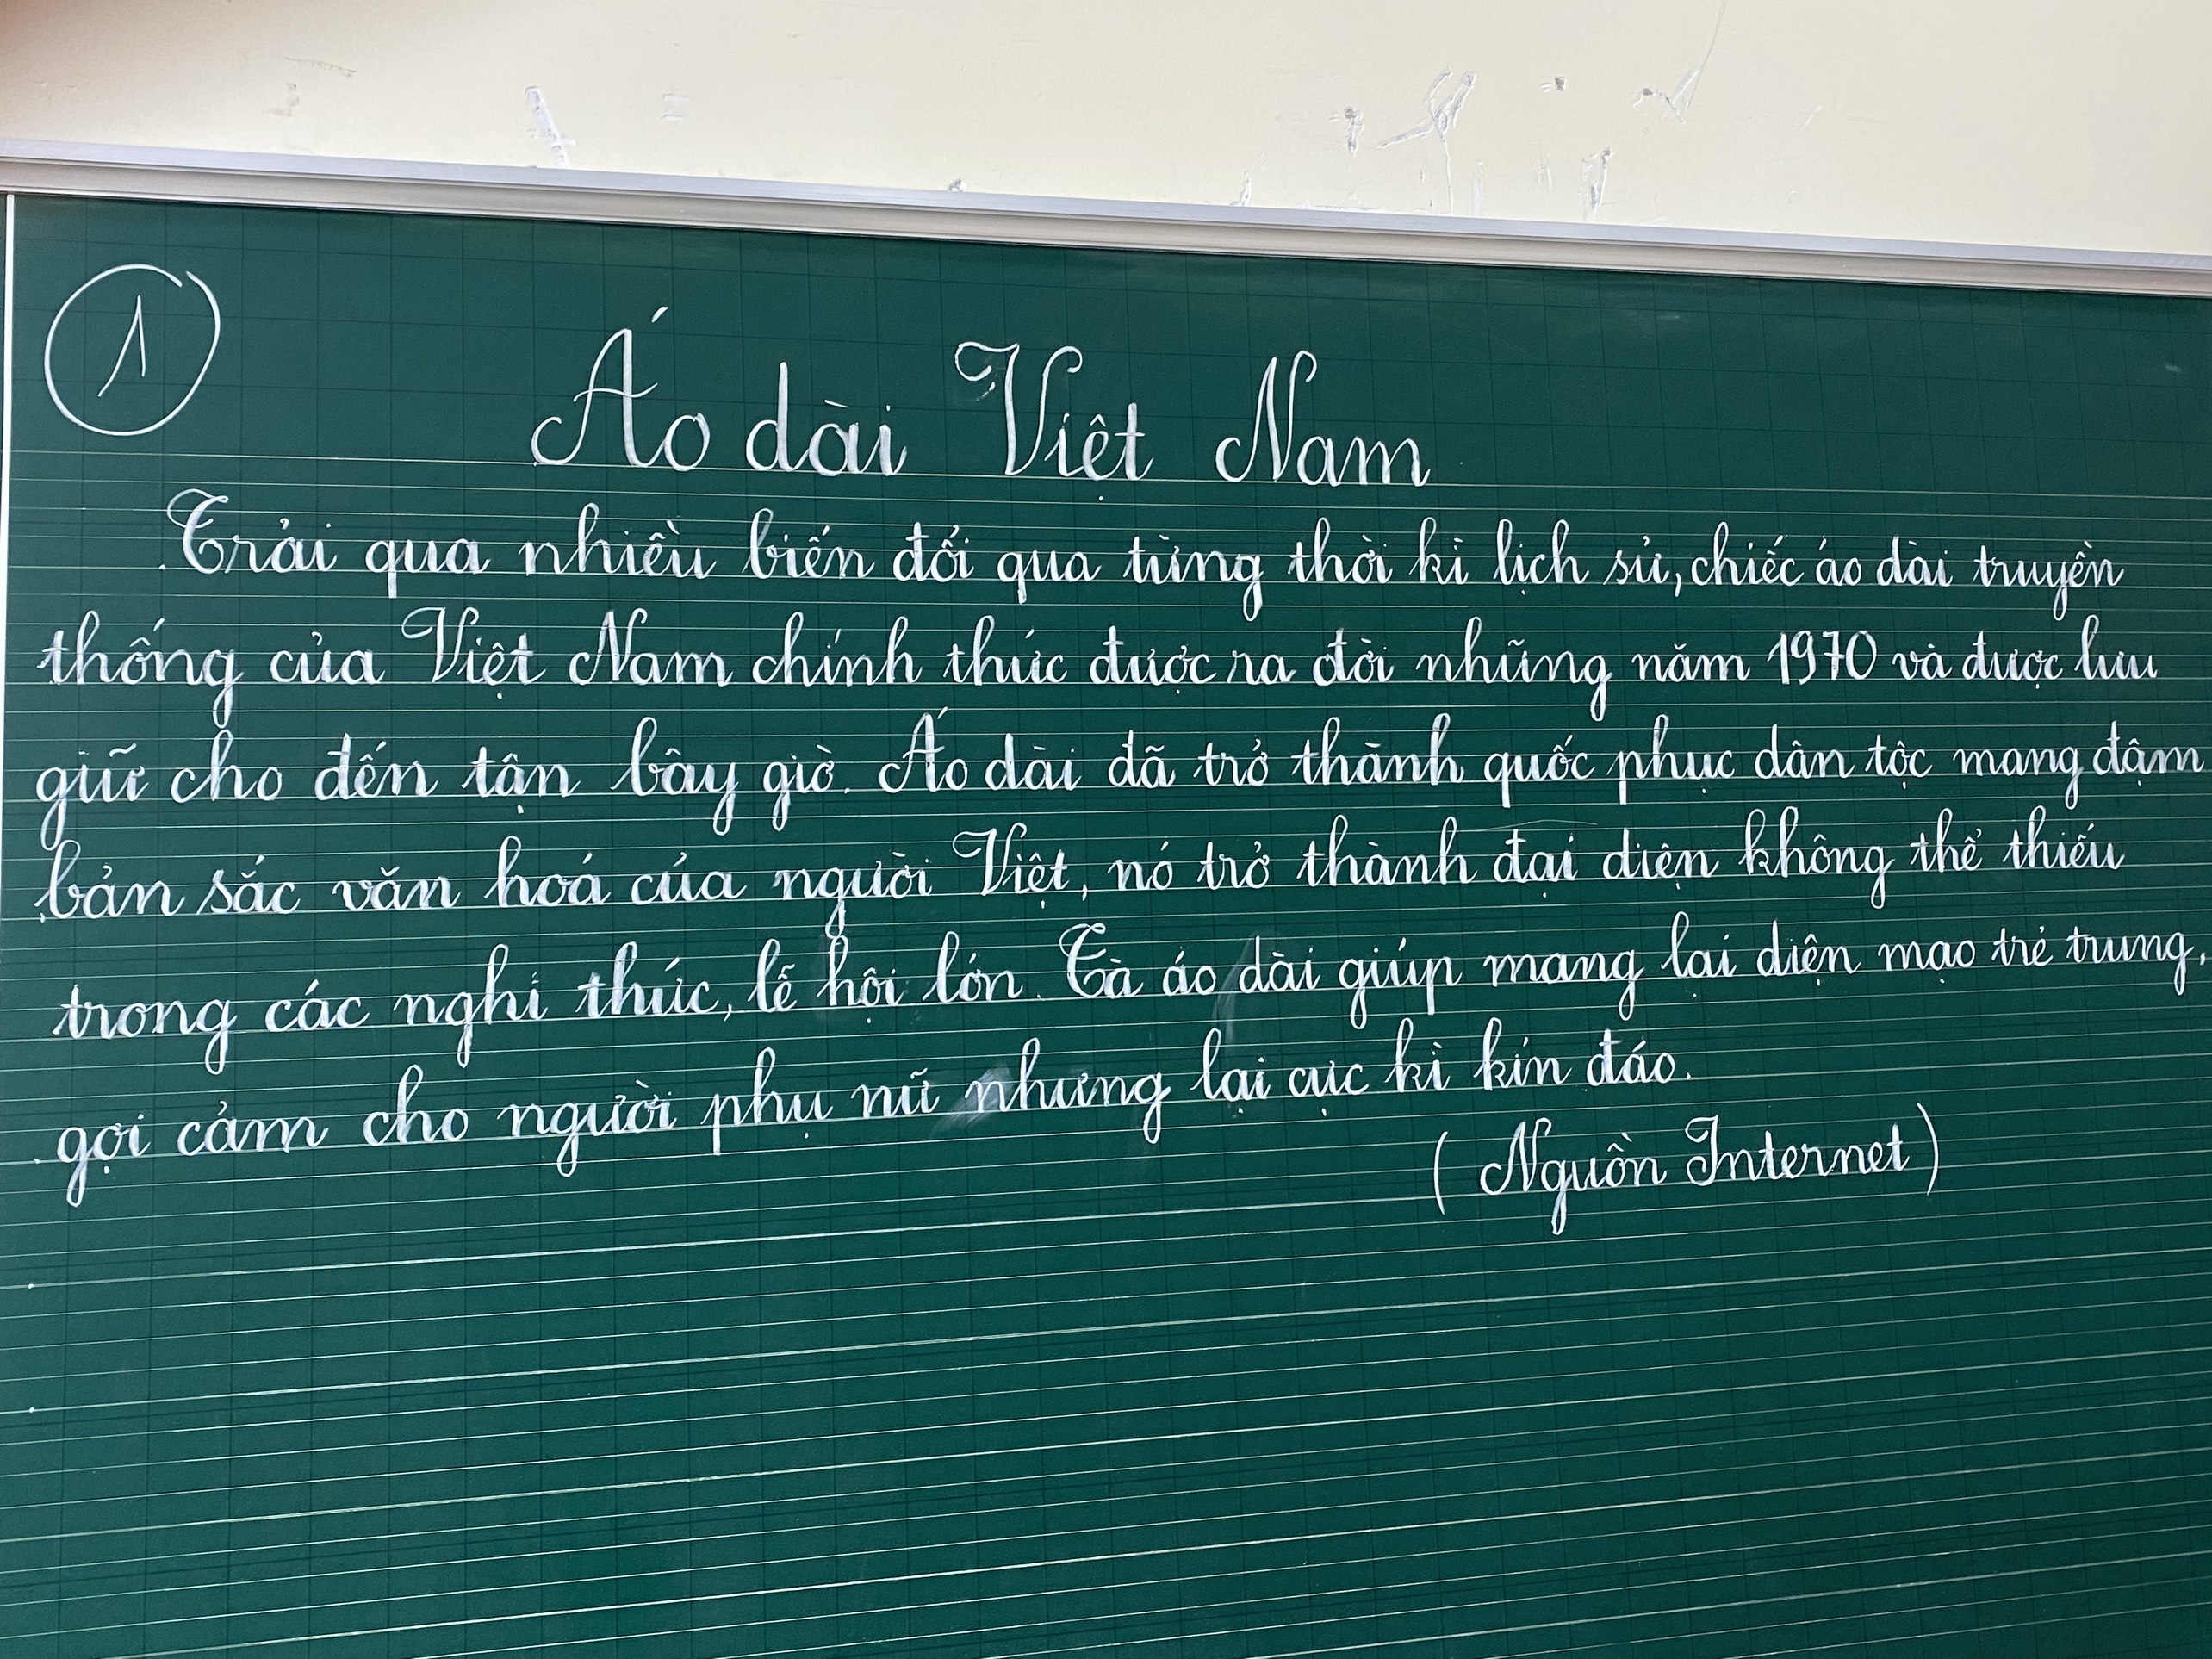 1
Áo dài Việt Nam
Trải qua nhiều biến đổi qua từng thời kì lịch sử, chiếc áo dài truyền
thống của Việt Nam chính thức được ra đời những năm 1970 và được lưu
giữ cho đến tận bây giờ. Áo dài đã trở thành quốc phục dân tộc mang đậm
bản sắc văn hoá của người Việt, nó trở thành đại diện không thể thiếu
trong các nghi thức, lễ hội lớn. Tà áo dài giúp mang lại diện mạo trẻ trung,
gợi cảm cho người phụ nữ nhưng lại cực kì kín đáo.
(Nguồn Internet)